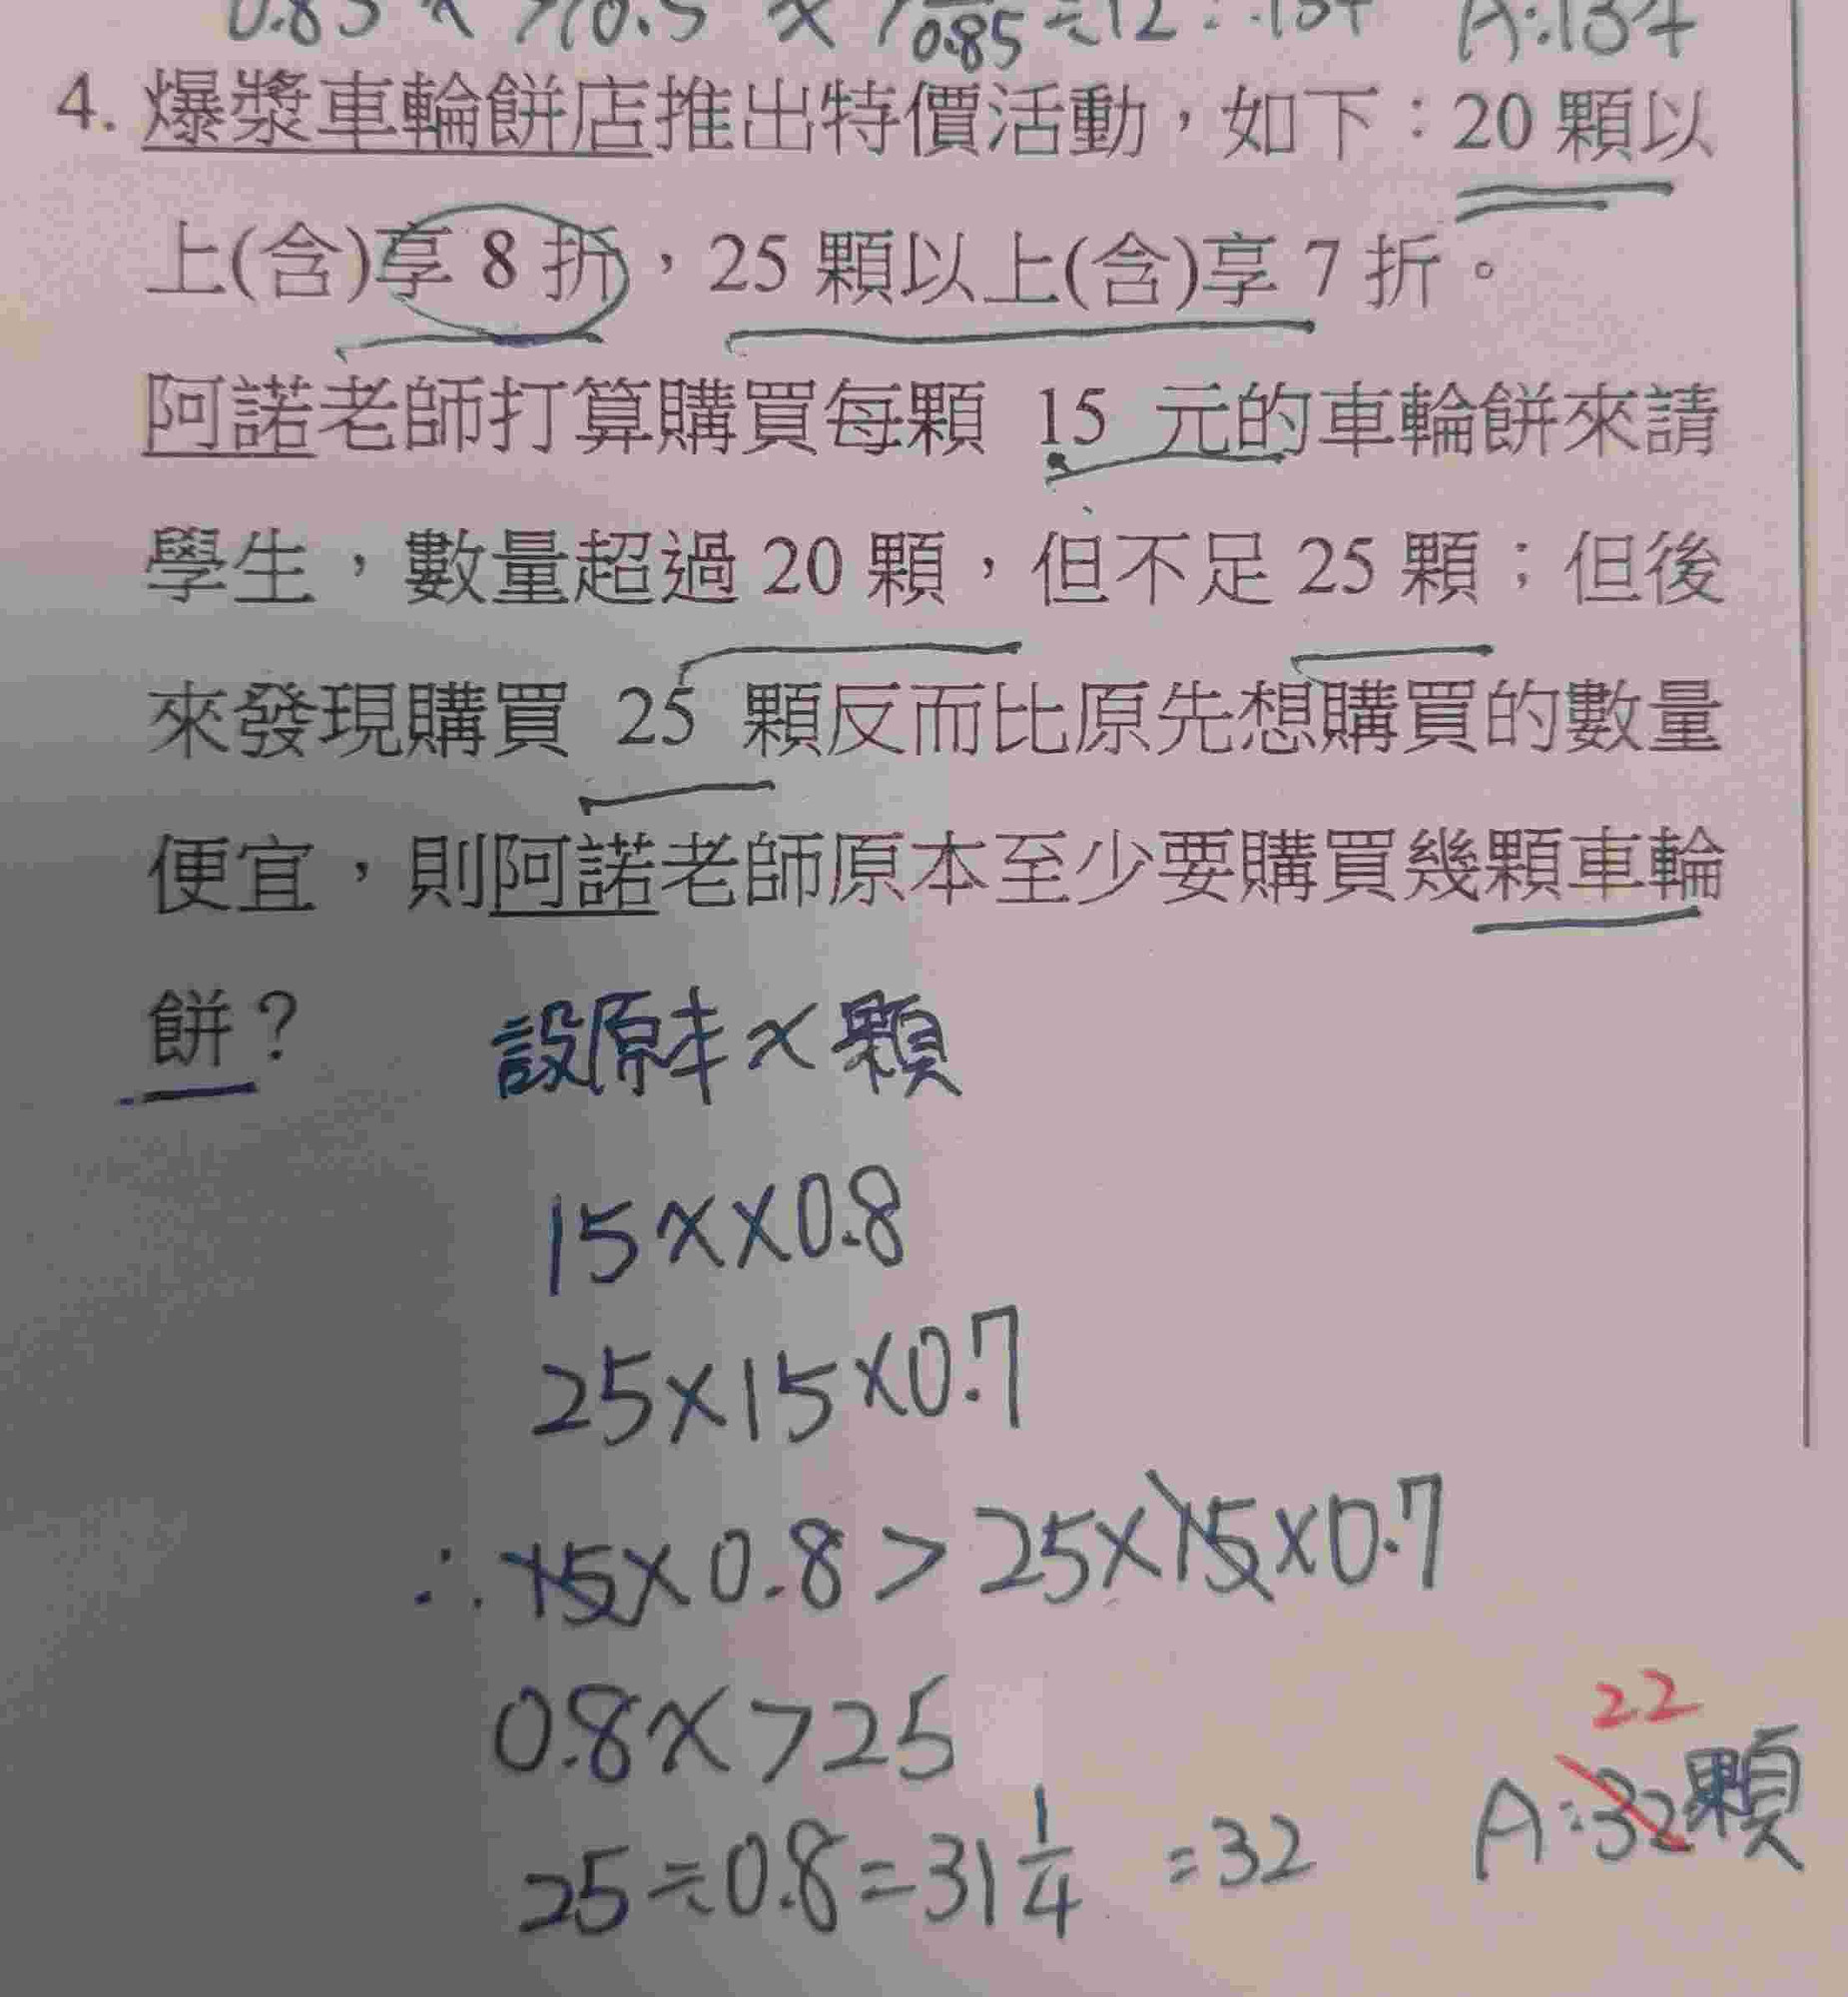 A:134
4. 爆漿車輪餅店推出特價活動，如下：20 顆以
上(含)享 8 折，25 顆以上(含)享 7 折。
阿諾老師打算購買每顆 15 元的車輪餅來請
學生，數量超過 20 顆，但不足 25 顆；但後
來發現購買 25 顆反而比原先想購買的數量
便宜，則阿諾老師原本至少要購買幾顆車輪
餅？
設原本x顆
15x×0.8
25×15×0.7
∴ 15x×0.8>25×15×0.7
0.8x>25
25÷0.8=31 1/4 =32
22
A:32顆